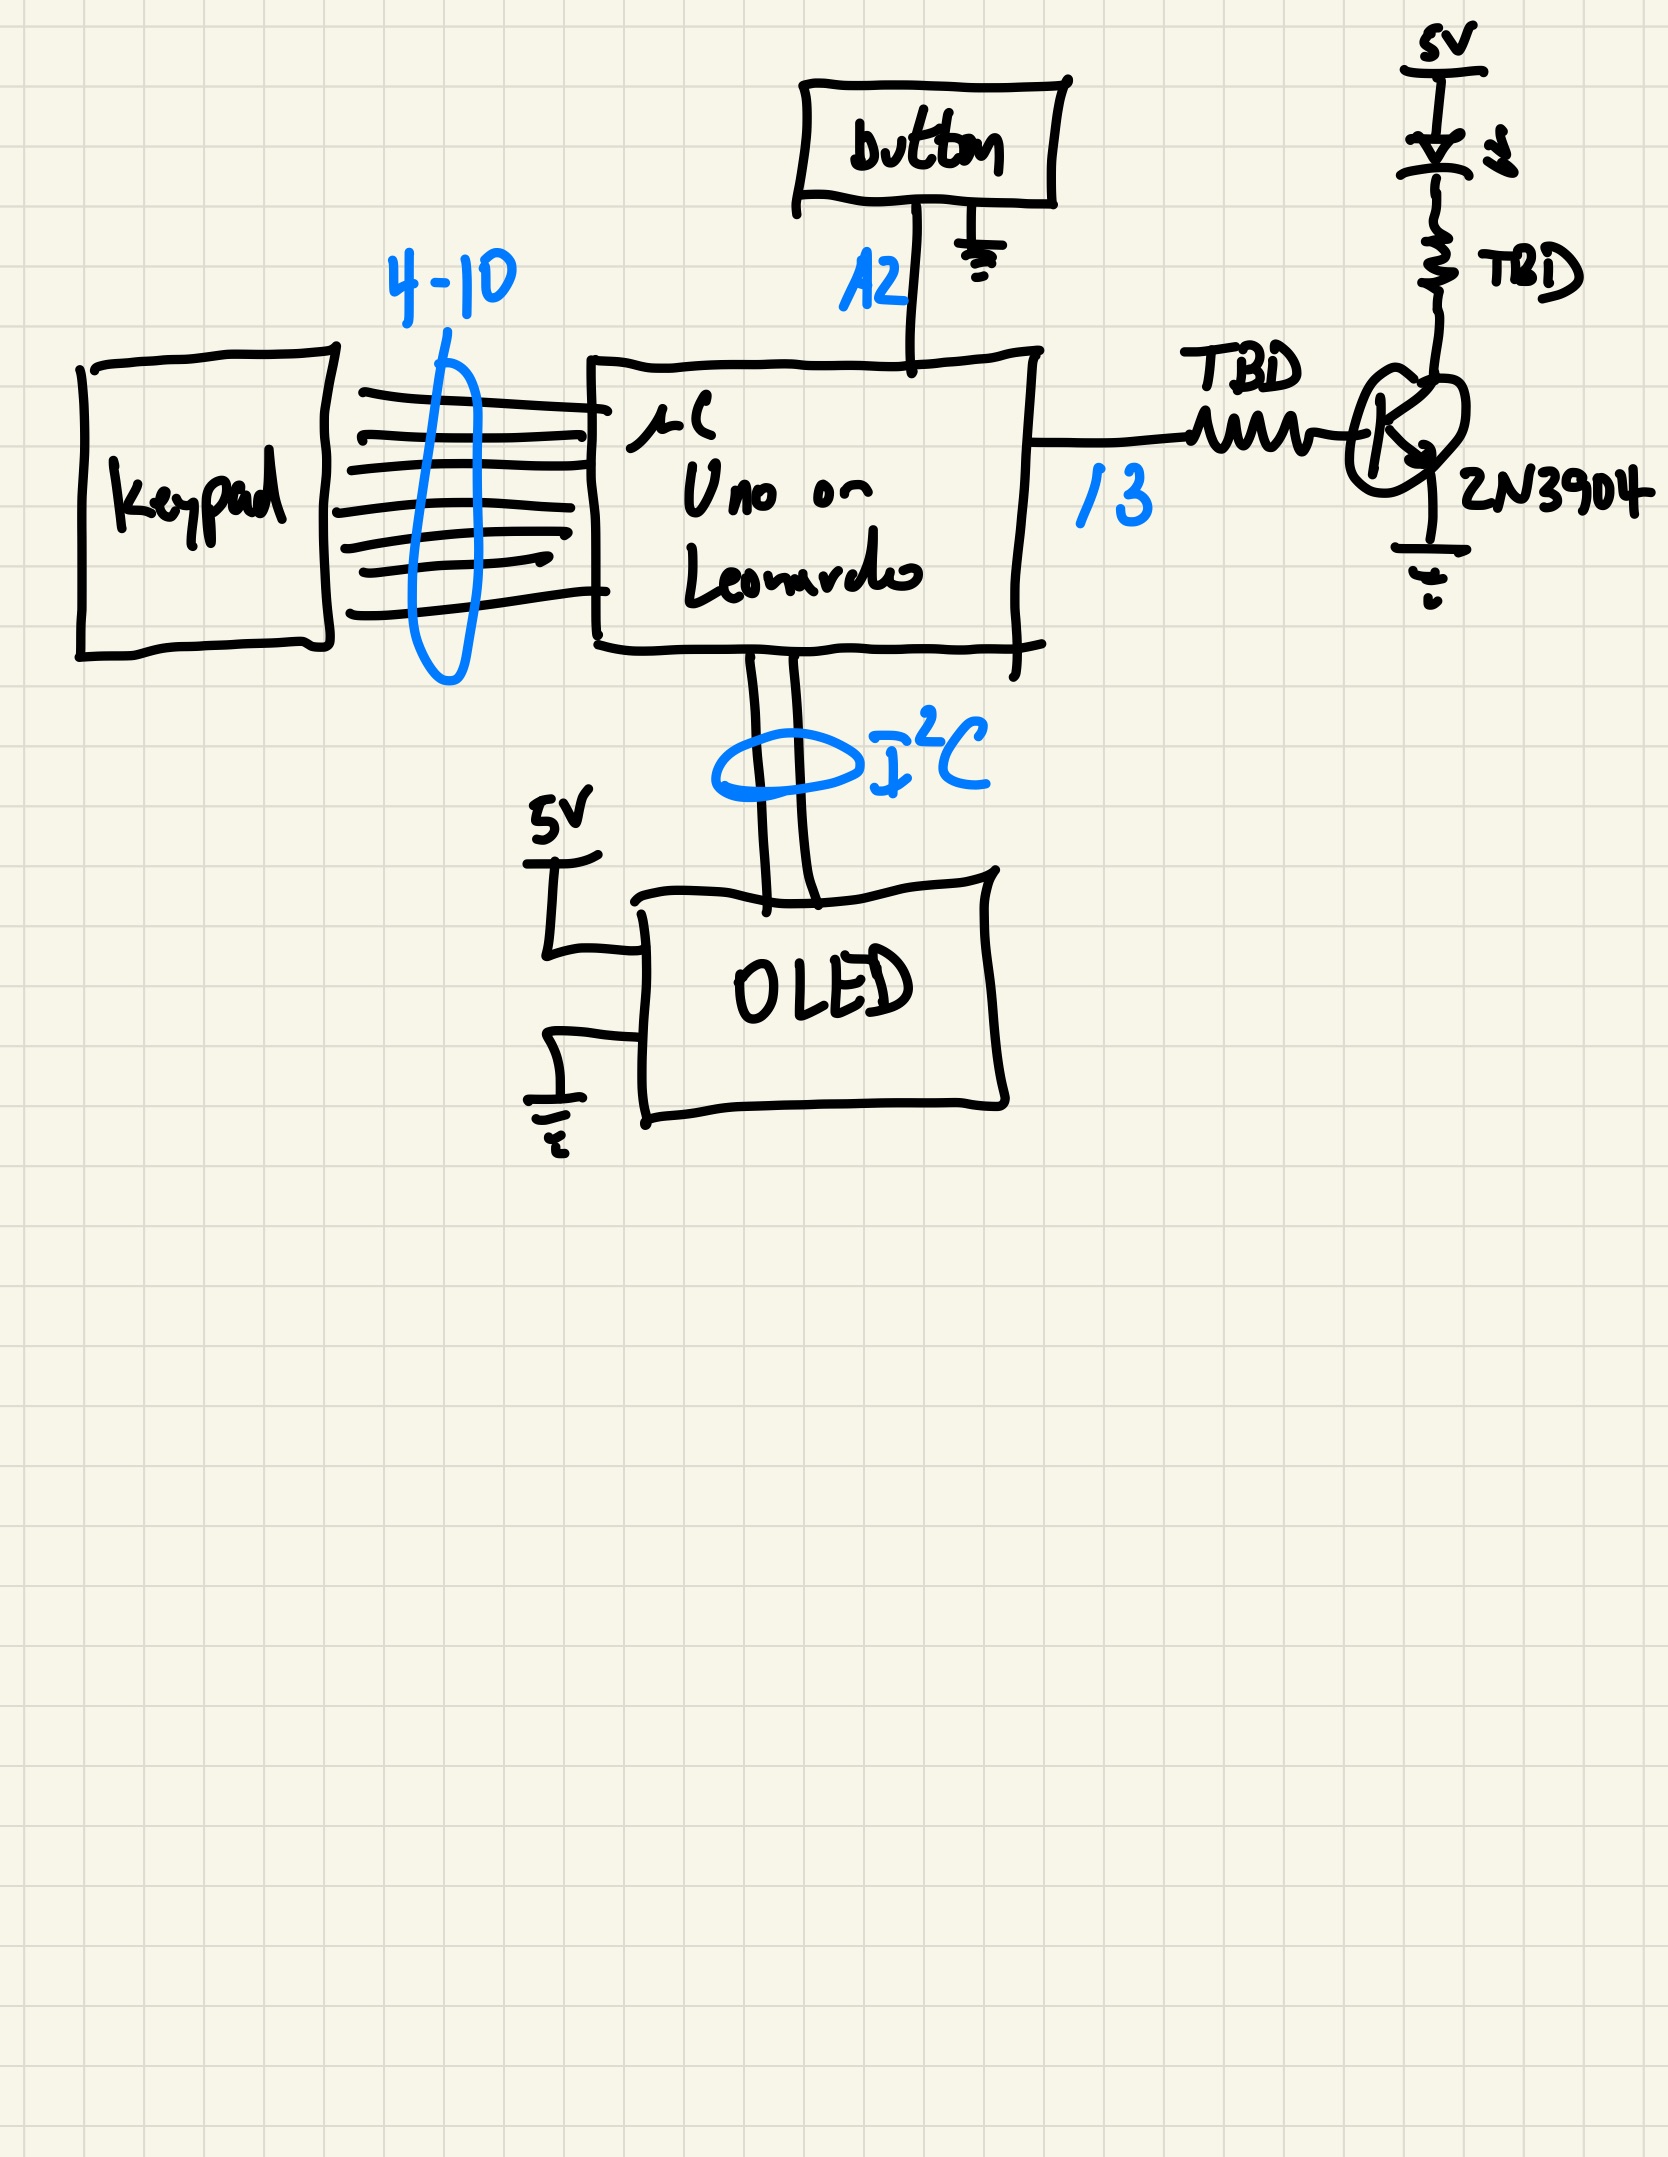 5V
button
TBD
A2
4-10
TBD
Keypad
μC
Uno or
Leonardo
13
2N3904
I²C
5V
OLED